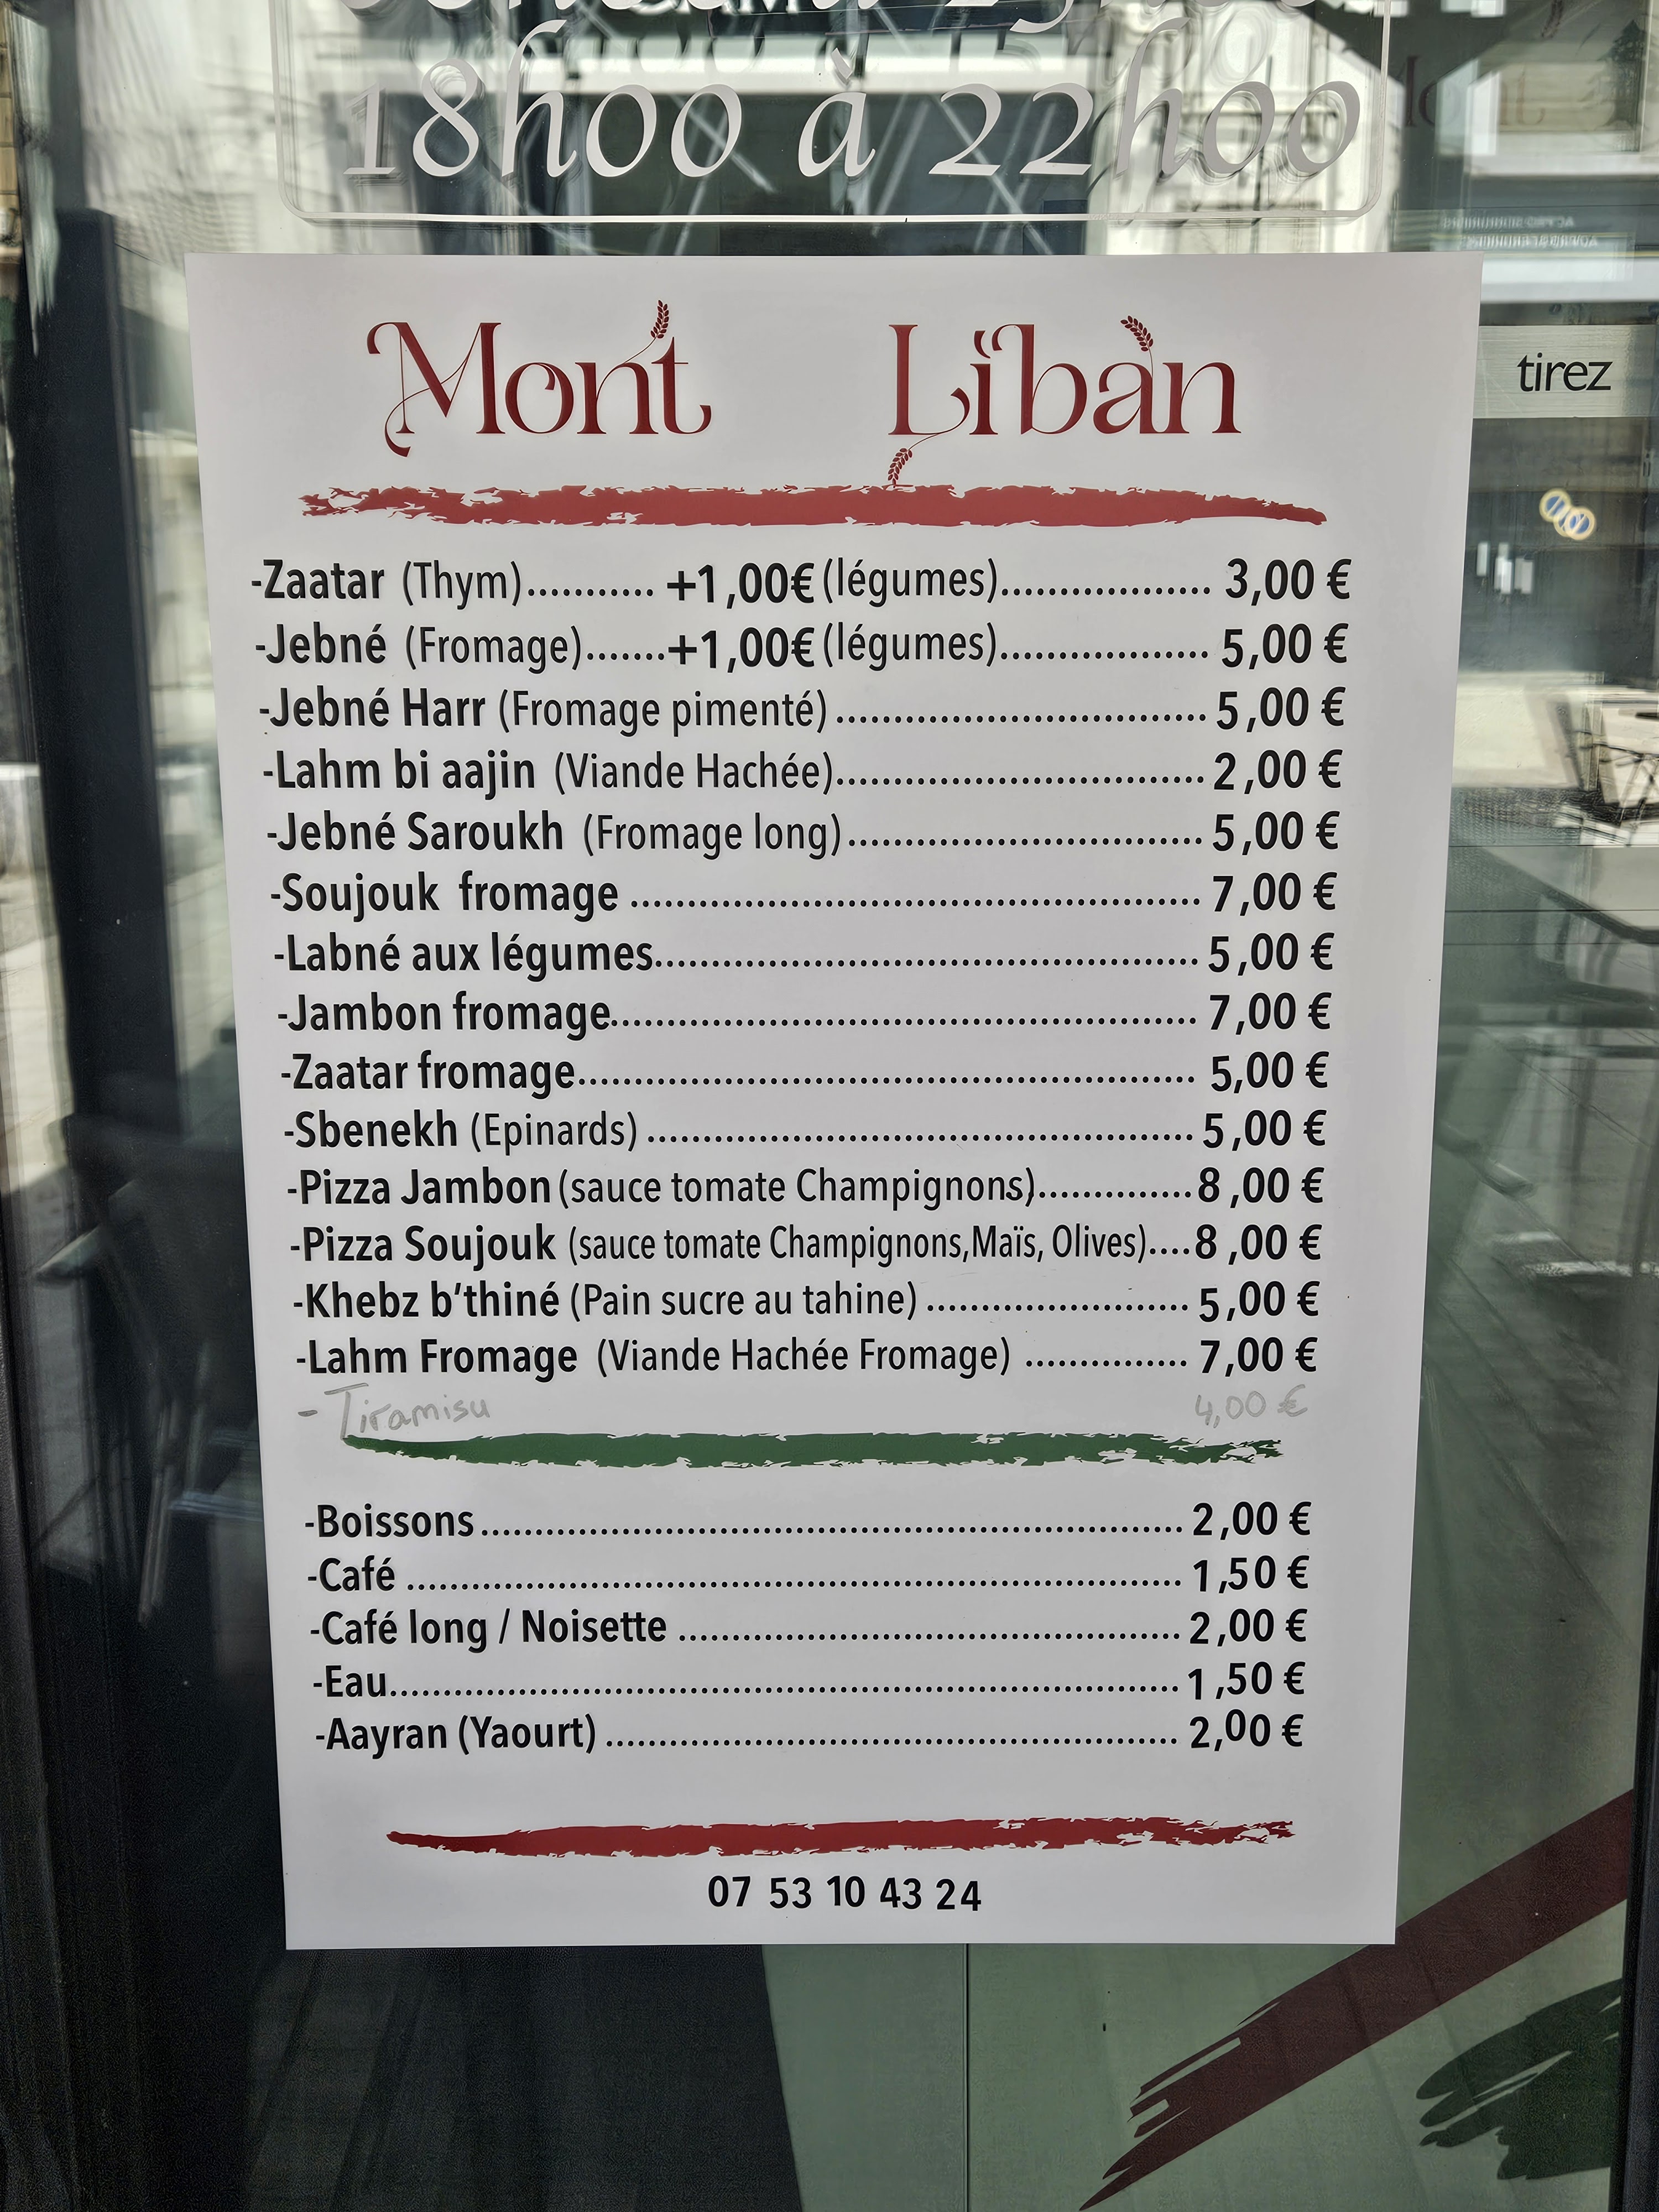 18h00 à 22h00
Mont Liban
tirez
-Zaatar (Thym)........... +1,00€ (légumes)................... 3,00 €
-Jebné (Fromage).......+1,00€ (légumes)................... 5,00 €
-Jebné Harr (Fromage pimenté) .................................. 5,00 €
-Lahm bi aajin (Viande Hachée).................................. 2,00 €
-Jebné Saroukh (Fromage long)................................. 5,00 €
-Soujouk fromage ..................................................... 7,00 €
-Labné aux légumes................................................... 5,00 €
-Jambon fromage....................................................... 7,00 €
-Zaatar fromage.......................................................... 5,00 €
-Sbenekh (Epinards) ................................................... 5,00 €
-Pizza Jambon (sauce tomate Champignons)..............8 ,00 €
-Pizza Soujouk (sauce tomate Champignons,Maïs, Olives)....8 ,00 €
-Khebz b’thiné (Pain sucre au tahine) ......................... 5,00 €
-Lahm Fromage (Viande Hachée Fromage) ............... 7,00 €
- Tiramisu 4,00 €
-Boissons................................................................... 2,00 €
-Café .......................................................................... 1,50 €
-Café long / Noisette ................................................ 2,00 €
-Eau............................................................................ 1,50 €
-Aayran (Yaourt) ....................................................... 2,00 €
07 53 10 43 24